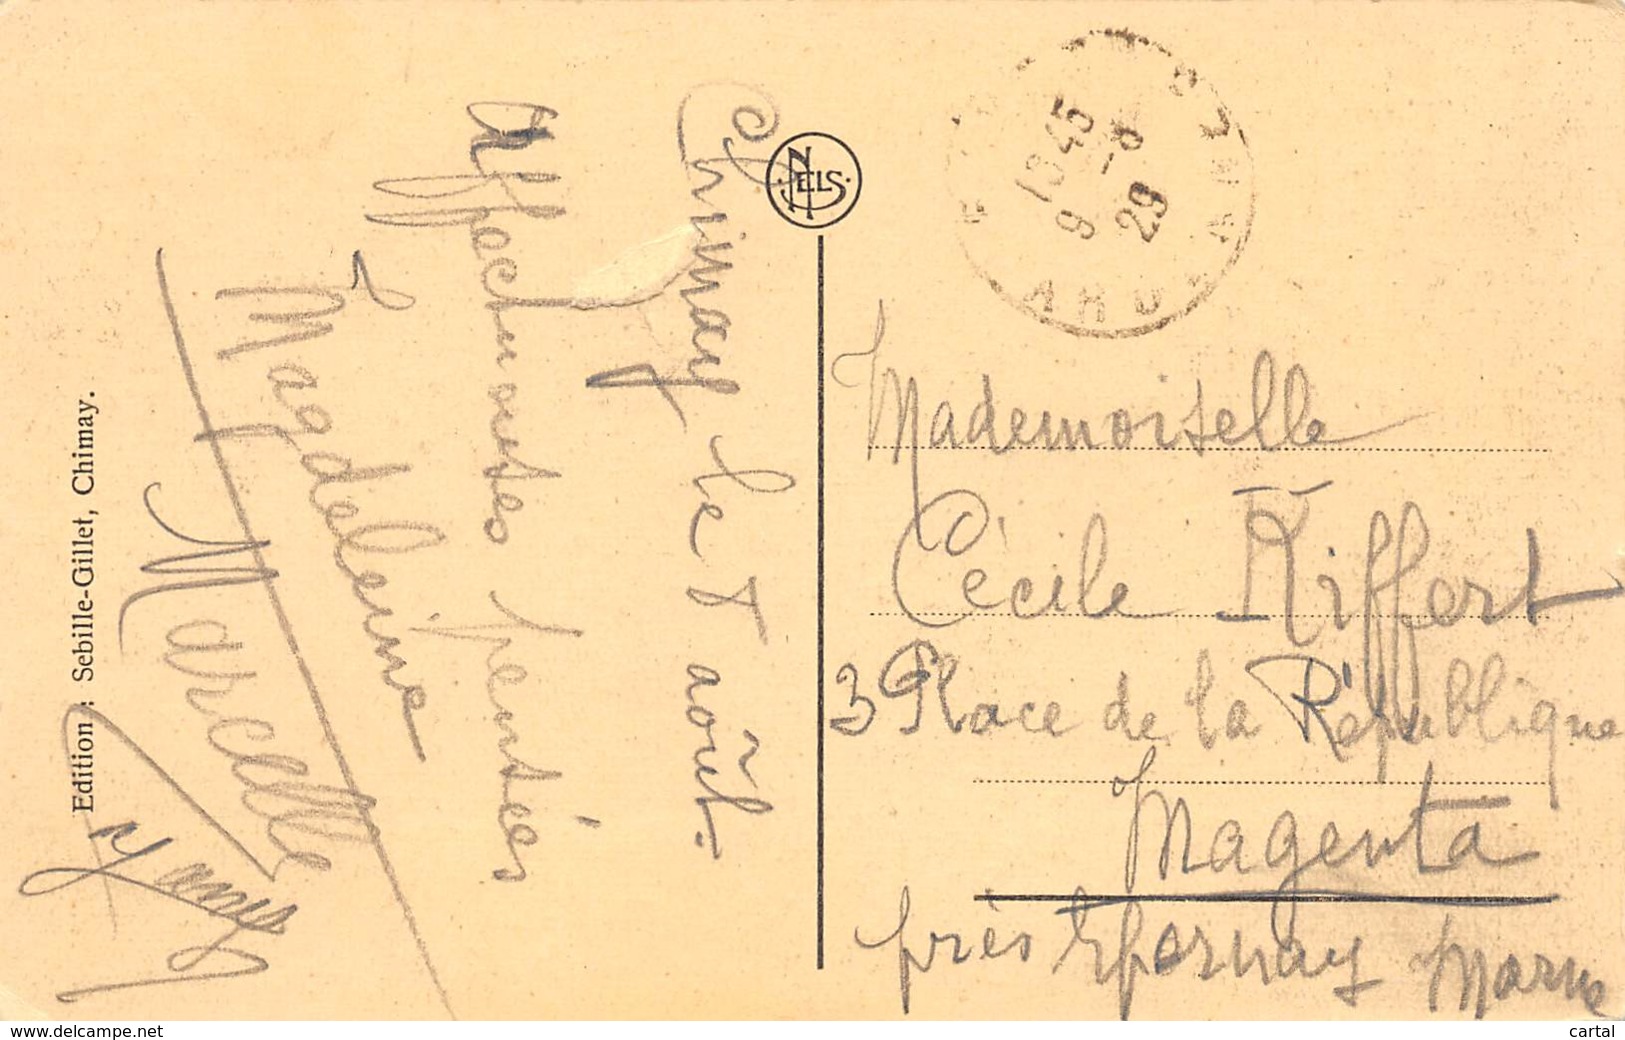 Edition : Sebille-Gillet, Chimay.
Chimay le 8 août.-
Affectueuses pensées
Magdeleine
Marcelle
NELS
13 45
9 -8
29
Mademoiselle
Cécile Riffert
3 Place de la République
Magenta
près Epernay Marne
www.delcampe.net
cartal